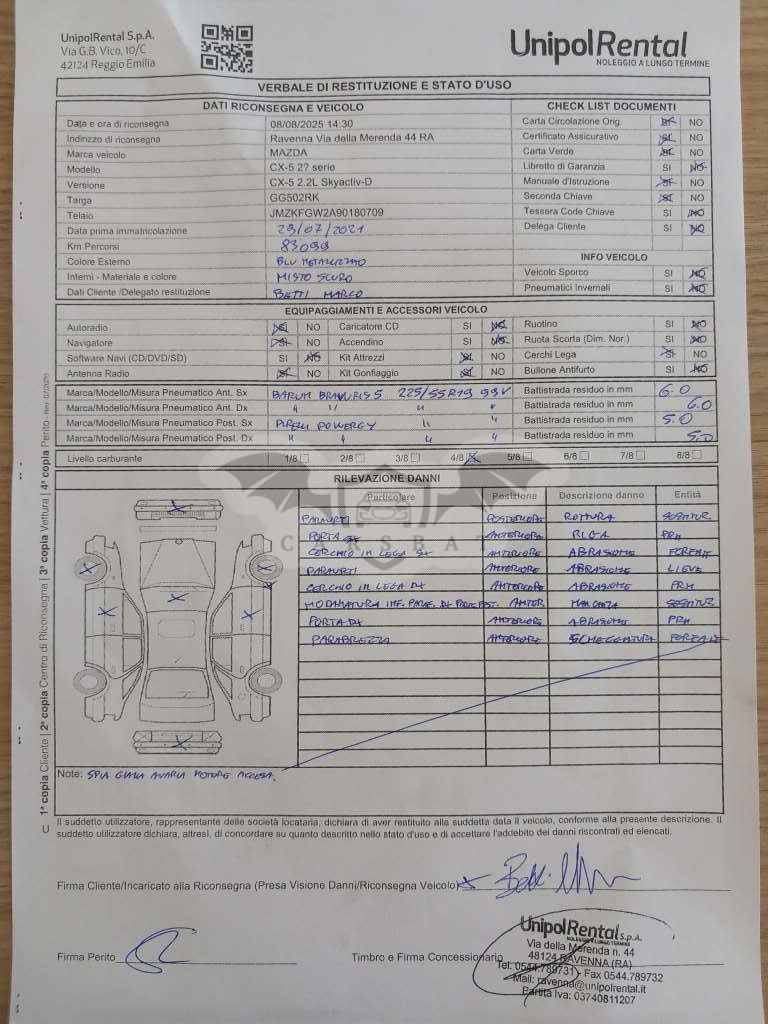 UnipolRental S.p.A.
Via G.B. Vico, 10/C
42124 Reggio Emilia
UnipolRental
NOLEGGIO A LUNGO TERMINE
VERBALE DI RESTITUZIONE E STATO D'USO
DATI RICONSEGNA E VEICOLO
Data e ora di riconsegna 08/08/2025 14:30
Indirizzo di riconsegna Ravenna Via della Merenda 44 RA
Marca veicolo MAZDA
Modello CX-5 2? serie
Versione CX-5 2.2L Skyactiv-D
Targa GG502RK
Telaio JMZKFGW2A90180709
Data prima immatricolazione 29/07/2021
Km Percorsi 83099
Colore Esterno BLU METALLIZZATO
Interni - Materiale e colore MISTO SCURO
Dati Cliente /Delegato restituzione BETTI MARCO
CHECK LIST DOCUMENTI
Carta Circolazione Orig. SI NO
Certificato Assicurativo SI NO
Carta Verde SI NO
Libretto di Garanzia SI NO
Manuale d'Istruzione SI NO
Seconda Chiave SI NO
Tessera Code Chiave SI NO
Delega Cliente SI NO
INFO VEICOLO
Veicolo Sporco SI NO
Pneumatici Invernali SI NO
EQUIPAGGIAMENTI E ACCESSORI VEICOLO
Autoradio SI NO Caricatore CD SI NO Ruotino SI NO
Navigatore SI NO Accendino SI NO Ruota Scorta (Dim. Nor.) SI NO
Software Navi (CD/DVD/SD) SI NO Kit Attrezzi SI NO Cerchi Lega SI NO
Antenna Radio SI NO Kit Gonfiaggio SI NO Bullone Antifurto SI NO
Marca/Modello/Misura Pneumatico Ant. Sx BARUM BRAVURIS 5 225/55R19 99V Battistrada residuo in mm 6.0
Marca/Modello/Misura Pneumatico Ant. Dx " " " " Battistrada residuo in mm 6.0
Marca/Modello/Misura Pneumatico Post. Sx PIRELLI POWERGY " " Battistrada residuo in mm 5.0
Marca/Modello/Misura Pneumatico Post. Dx " " " " Battistrada residuo in mm 5.0
Livello carburante 1/8 2/8 3/8 4/8 5/8 6/8 7/8 8/8
RILEVAZIONE DANNI
Particolare Posizione Descrizione danno Entità
PARAURTI POSTERIORE ROTTURA SOSTITUZ.
PORTA SX ANTERIORE RIGA PRM
CERCHIO IN LEGA SX ANTERIORE ABRASIONE
PARAURTI ANTERIORE ABRASIONE LIEVE
CERCHIO IN LEGA DX ANTERIORE ABRASIONE PRM
MODANATURA INF. PARAF. DX PARTE POST. ANTER MANCANZA SOSTITUZ
PORTA DX ANTERIORE ABRASIONE PRM
PARABREZZA ANTERIORE SCHEGGIATURA
CARSBAT
Note: SPIA GIALLA AVARIA MOTORE ACCESA.
1ª copia Cliente | 2ª copia Centro di Riconsegna | 3ª copia Vettura | 4ª copia Perito - Rev. 07/2020
U
Il suddetto utilizzatore, rappresentante delle società locataria, dichiara di aver restituito alla suddetta data il veicolo, conforme alla presente descrizione. Il
suddetto utilizzatore dichiara, altresì, di concordare su quanto descritto nello stato d'uso e di accettare l'addebito dei danni riscontrati ed elencati.
Firma Cliente/Incaricato alla Riconsegna (Presa Visione Danni/Riconsegna Veicolo) X
Firma Perito
Timbro e Firma Concessionario
UnipolRental S.p.A.
NOLEGGIO A LUNGO TERMINE
Via della Merenda n. 44
48124 RAVENNA (RA)
Tel. 0544.789731 - Fax 0544.789732
Mail: ravenna@unipolrental.it
Partita Iva: 03740811207